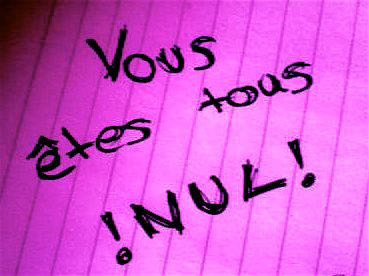 Vous
êtes tous
!NUL!